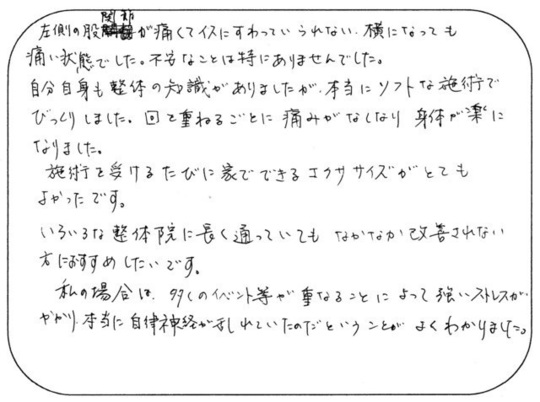 左側の股関節が痛くてイスにすわっていられない、横になっても
痛い状態でした。不安なことは特にありませんでした。
自分自身も整体の知識がありましたが、本当にソフトな施術で
びっくりしました。回を重ねるごとに痛みがなくなり身体が楽に
なりました。
施術を受けるたびに家でできるエクササイズがとても
よかったです。
いろいろな整体院に長く通っていてもなかなか改善されない
方におすすめしたいです。
私の場合は、多くのイベント等が重なることによって強いストレスが
かかり、本当に自律神経が乱れていたのだということがよくわかりました。